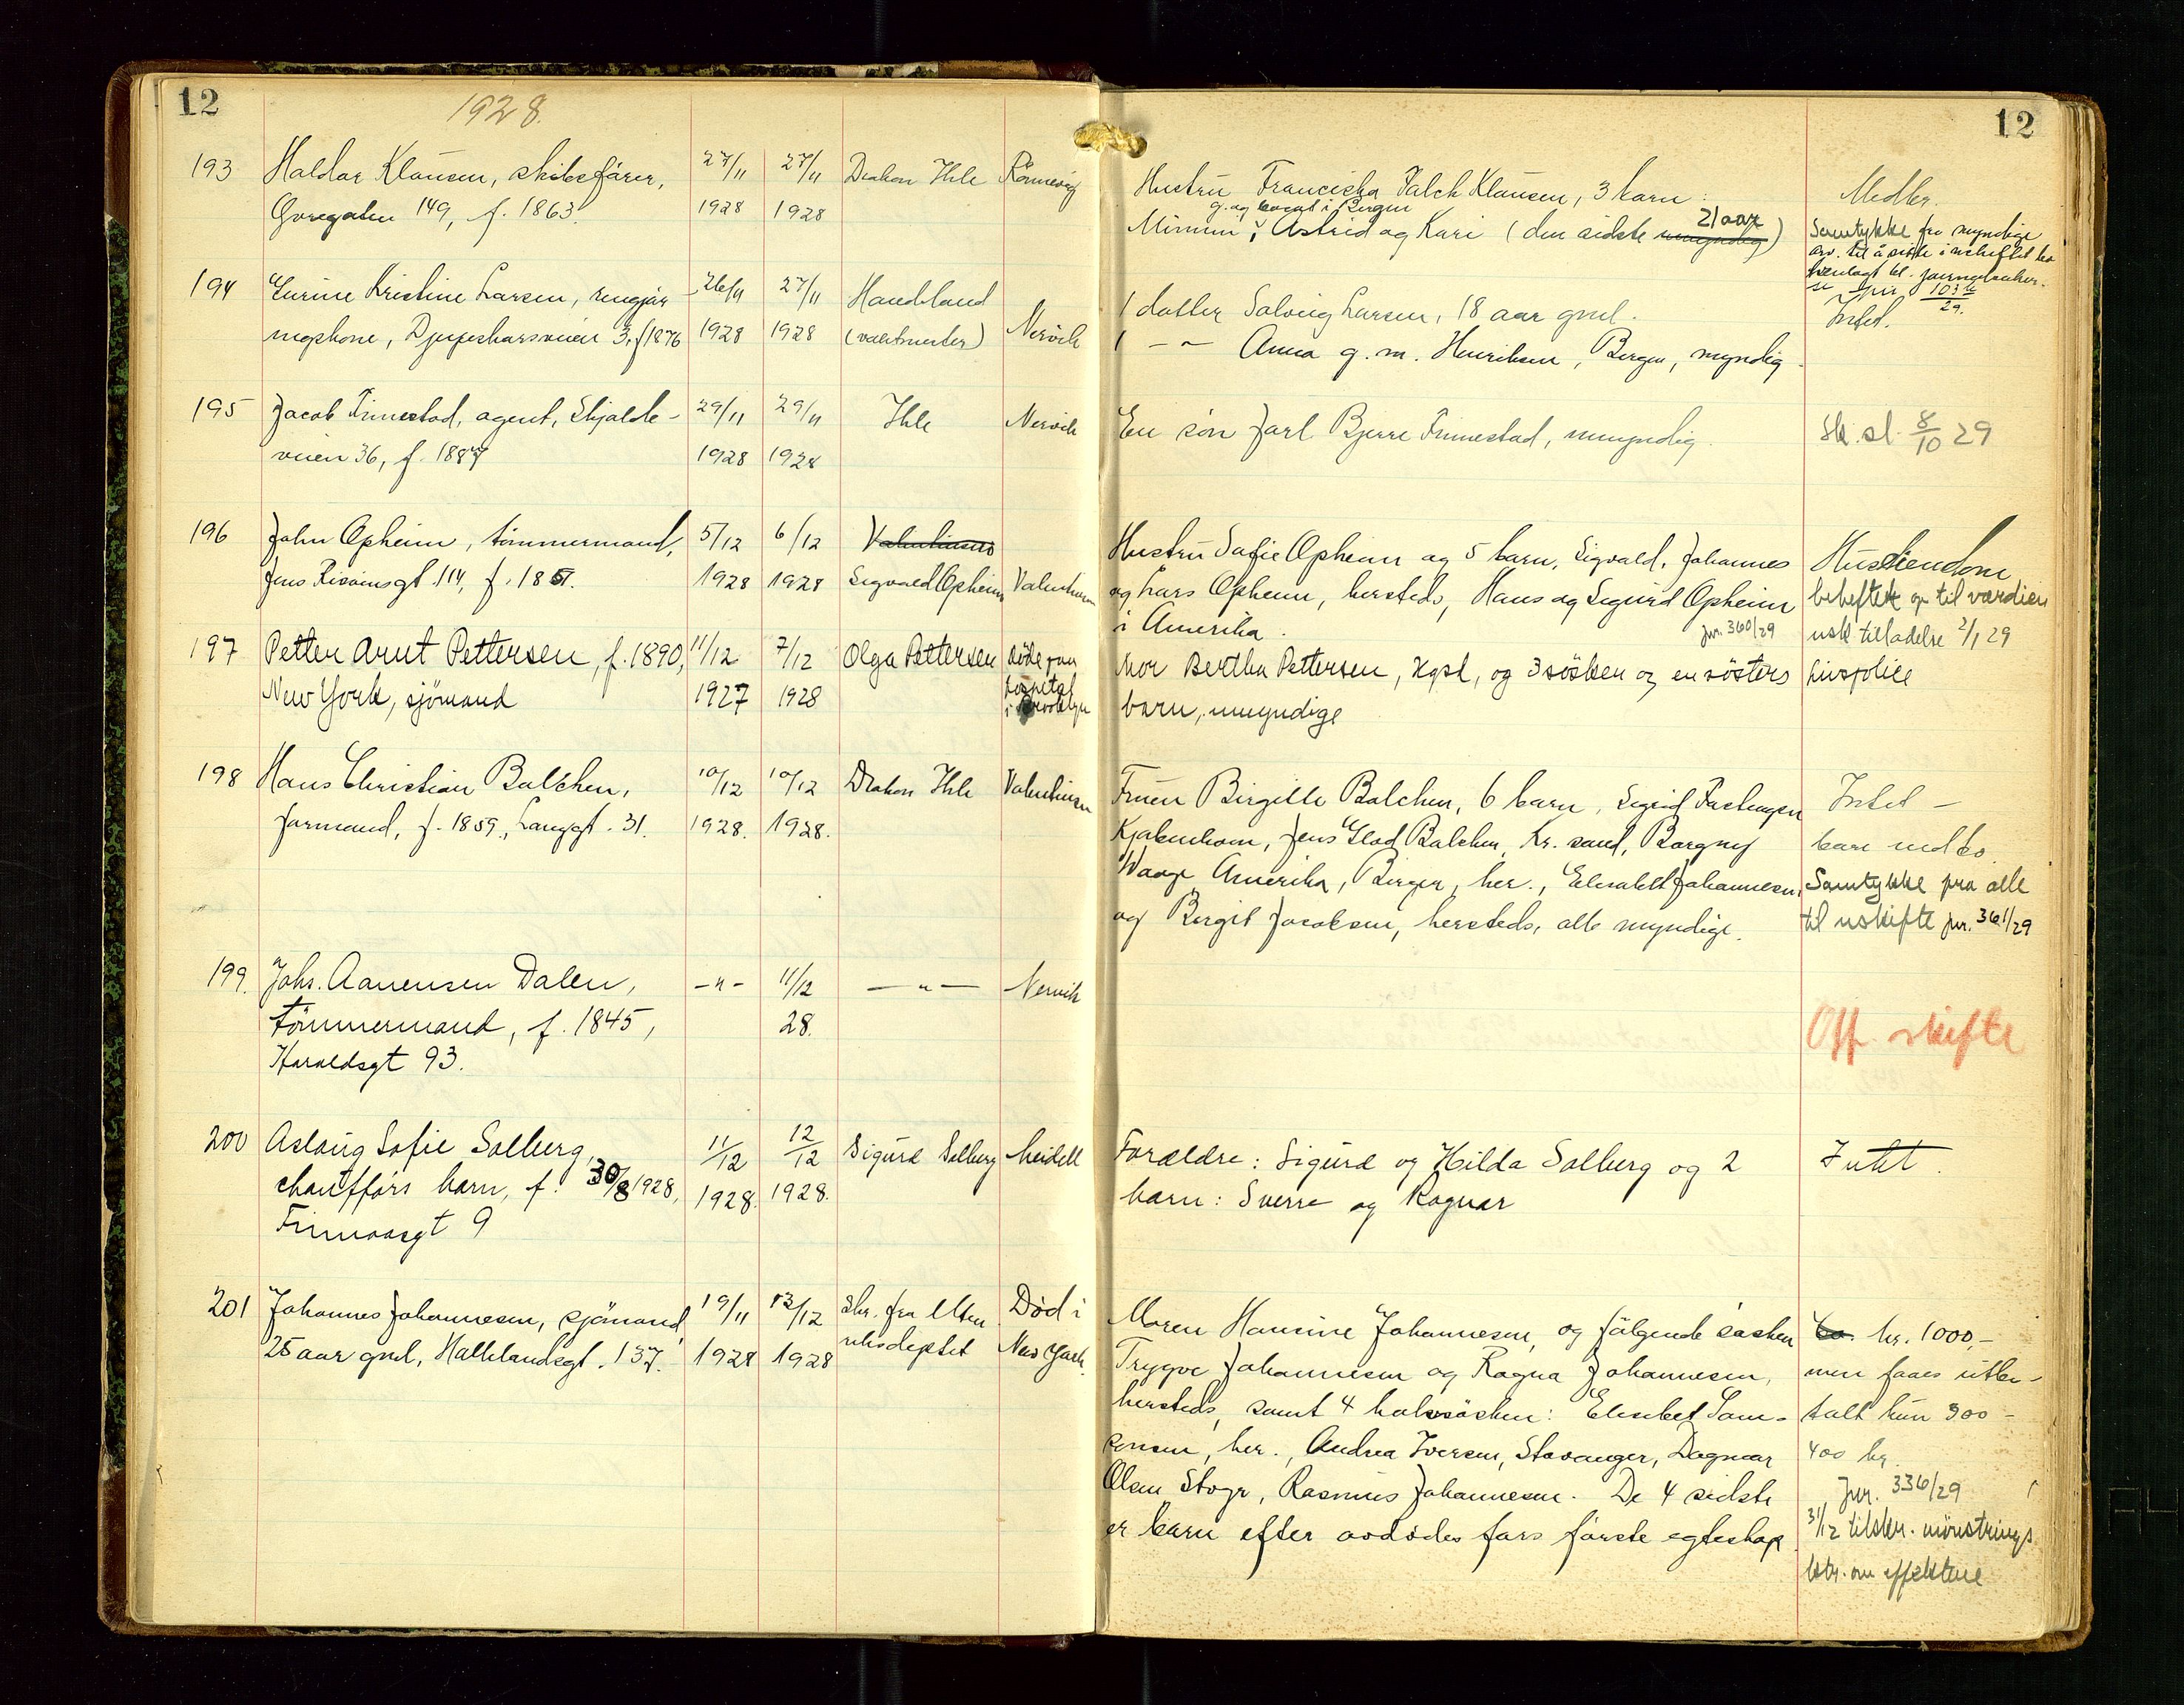 12
1928.
12
193 Haldor Klausen, skibsfører, 27/11 27/11 Diakon Ihle Rønnevig
Øvregaten 149, f. 1863. 1928 1928
Hustru Franciska Falch Klausen, 3 barn: Midler.
g. og bosat i Bergen
Mimmi, Astrid og Kari (den sidste umyndig) 21 aar
Samtykke fra myndige
arv. til å sitte i uskiftet bo
jnr. 1036/29.
194 Gurine Kristine Larsen, rengjør- 26/11 27/11 Haudeland
ingskone, Djupeskarsveien 3, f 1876 1928 1928 (vaktmester) Nervik
1 datter Solveig Larsen, 18 aar gml. Intet.
1 -"- Anna g. m. Henriksen, Bergen, myndig.
195 Jacob Finnestad, agent, Skjolde- 29/11 29/11 Ihle Nervik
veien 36, f. 1887 1928 1928
En søn Jarl Bjerre Finnestad, umyndig. Sk. sl. 8/10 29
196 John Opheim, tømmermand, 5/12 6/12 Valentinsen
Jens Risøensgt. 114, f. 1851. 1928 1928 Sigvald Opheim Valentinsen
Hustru Sofie Opheim og 5 barn, Sigvald, Johannes Huseiendom
og Lars Opheim, hersteds, Hans og Sigurd Opheim beheftet op til værdien
i Amerika. jnr. 360/29 usk. tilladelse 2/1 29
197 Petter Arnt Pettersen, f. 1890, 11/12 7/12 Olga Pettersen døde paa
New York, sjömand 1927 1928 hospital
i Brooklyn
Mor Bertha Pettersen, Kgsd, og 3 søsken og en søsters livspolice
barn, umyndige
198 Hans Christian Balchen, 10/12 10/12 Diakon Ihle Valentinsen
formand, f. 1859, Langgt. 31. 1928. 1928.
Fruen Birgitte Balchen, 6 barn, Sigrid Intet -
Kjøbenhavn, Jens Glad Balchen, Kr. sand, Borgny bare indbo.
Waage Amerika, Birger, her., Elisabeth Johannesen, Samtykke fra alle
og Birgit Jacobsen, hersteds, alle myndige. til uskifte jnr. 361/29
199. Johs. Aanensen Dalen, -"- 11/12 -"- Nervik
Tömmermand, f. 1845, 28.
Haraldsgt 93.
Off. skifte
200 Aslaug Sofie Solberg, 11/12 12/12 Sigurd Solberg Meidell
chaufførs barn, f. 30/8 1928, 1928. 1928.
Finmoasgt 9
Forældre: Sigurd og Hilda Solberg og 2 Intet.
barn: Sverre og Ragnar
201 Johannes Johannesen, sjømand, 19/11 13/12 Skr. fra Uten- Død i
25 aar gml, Halelandsgt. 137. 1928 1928 riksdeptet New York.
Moren Hansine Johannesen, og følgende søsken kr. 1000,-
Trygve Johannesen og Ragna Johannesen, men faaes utbe-
hersteds, samt 4 halvsøsken: Elisabet Sam- talt kun 300-
sonsen, her., Andrea Iversen, Stavanger, Dagmar 400 kr.
Olsen Stvgr, Rasmus Johannesen. De 4 sidste Jnr. 336/29
er barn efter avdødes fars første egteskap 31/12 tilskr. mønstrings
ktr. om effektene